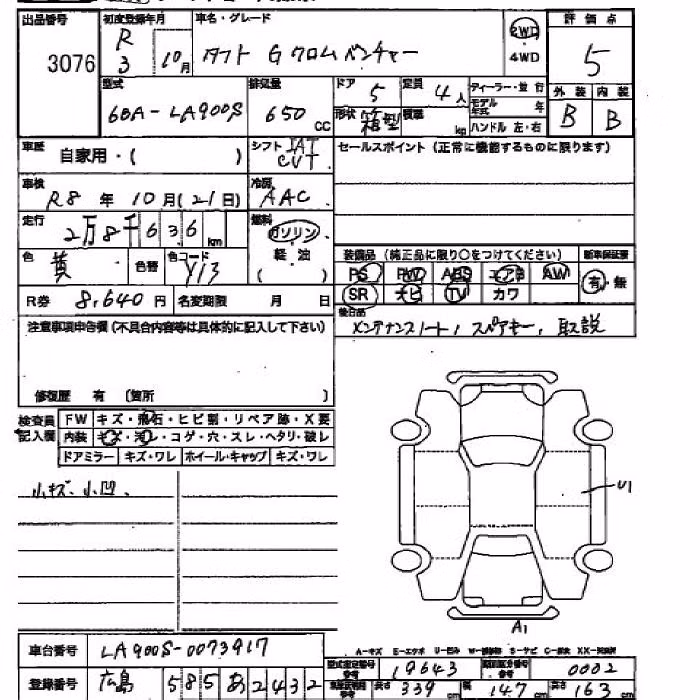 出品番号 初度登録年月 車名・グレード 評価点
3076 R3 10月 タフト Gクロムベンチャー 2WD 4WD 5
型式 排気量 ドア 5 定員 4人 ディーラー・並行 外装 内装
60A-LA900S 650cc 形状 箱型 積載 kg モデル年式 年 ハンドル 左・右 B B
車歴 自家用・( ) シフト IAT CVT セールスポイント(正常に機能するものに限ります)
車検 R8年10月(21日) 冷房 AAC
走行 2万8千636km 燃料 ガソリン 軽油 ( )
色 黄 色替 色コード Y13
装備品(純正品に限り○をつけてください) 新車保証書
PS PW ABS エアB AW 有・無
R券 8,640円 名変期限 月 日 SR ナビ TV カワ
注意事項申告欄(不具合内容等は具体的に記入して下さい) 後日品 メンテナンスノート, スペアキー, 取説
修復歴 有 〔箇所 〕
検査員記入欄 FW キズ・飛石・ヒビ割・リペア跡・X要
内装 キズ・汚レ・コゲ・穴・スレ・ヘタリ・破レ
ドアミラー キズ・ワレ ホイール・キャップ キズ・ワレ
小キズ、小凹、
U1
A1
車台番号 LA900S-0073917
A-キズ E-エクボ U-凹み
型式指定番号 19643 類別区分番号 0002
登録番号 広島 585 あ 2432 長さ 339cm 幅 147cm 高さ 163cm